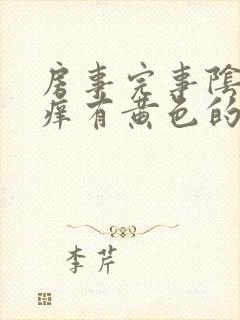 房事完事陰
痒有黄色的
李芹